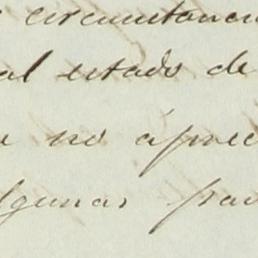 circunstanci
al estado de
no áprec
lgunas par